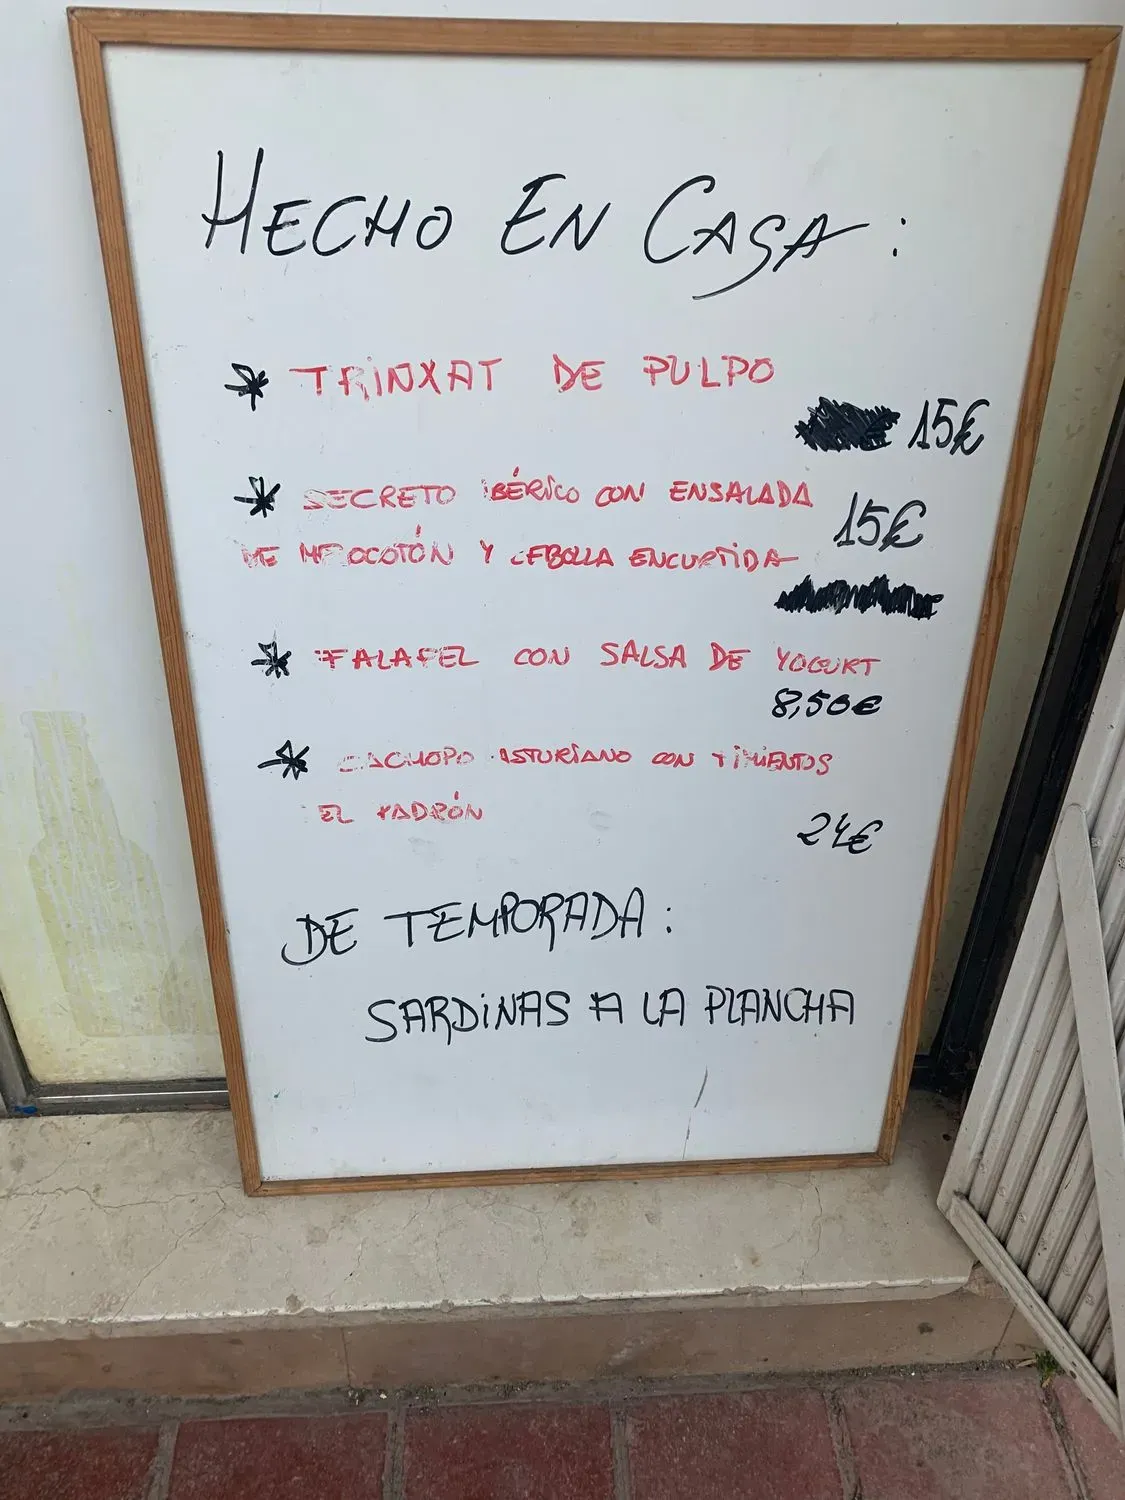 HECHO EN CASA:
* TRINXAT DE PULPO
15€
* SECRETO IBÉRICO CON ENSALADA
DE MELOCOTÓN Y CEBOLLA ENCURTIDA
15€
* FALAFEL CON SALSA DE YOGURT
8,50€
* CACHOPO ASTURIANO CON PIMIENTOS
EL PADRÓN
24€
DE TEMPORADA:
SARDINAS A LA PLANCHA